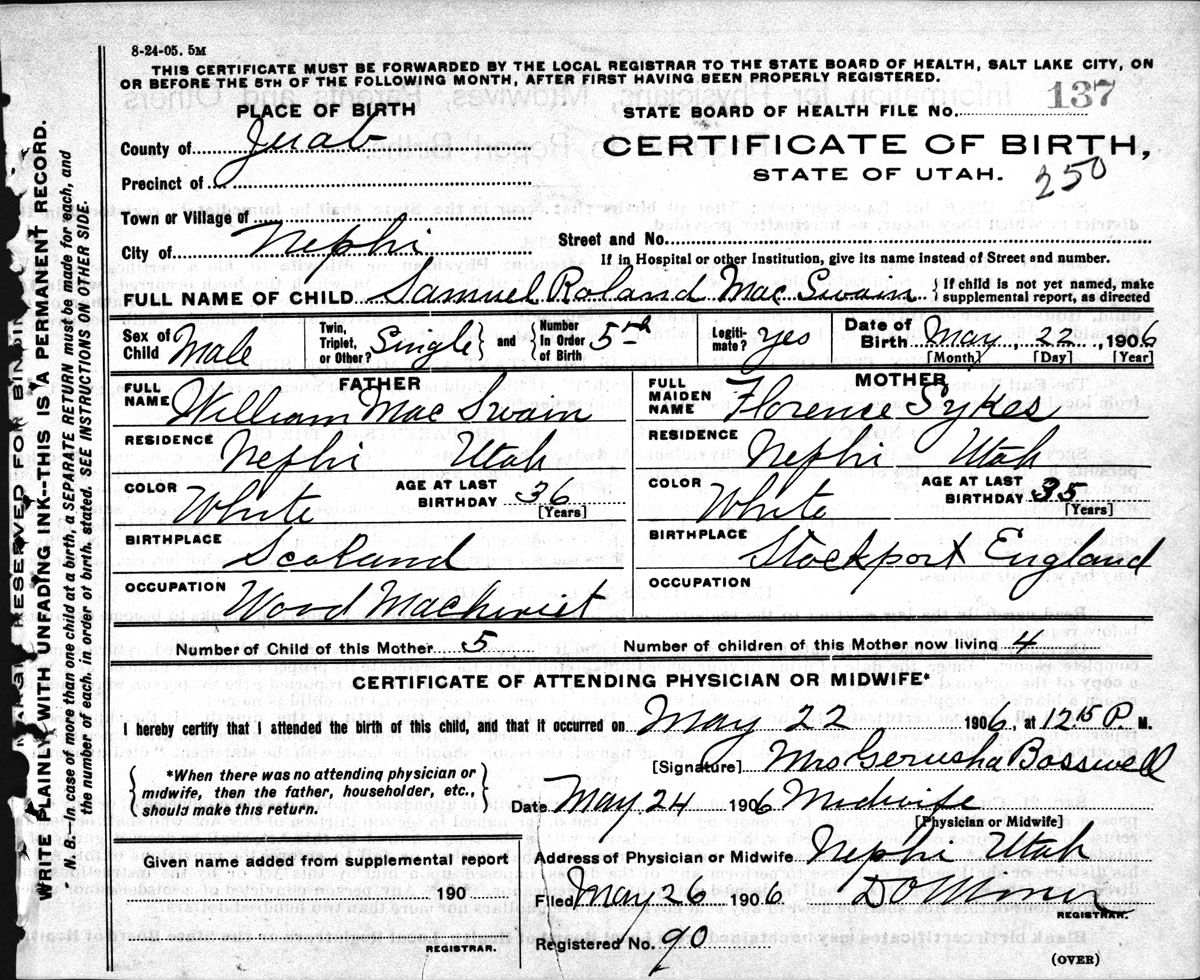 8-24-05. 5M
THIS CERTIFICATE MUST BE FORWARDED BY THE LOCAL REGISTRAR TO THE STATE BOARD OF HEALTH, SALT LAKE CITY, ON
OR BEFORE THE 5TH OF THE FOLLOWING MONTH, AFTER FIRST HAVING BEEN PROPERLY REGISTERED.
PLACE OF BIRTH
STATE BOARD OF HEALTH FILE No. 137
County of Juab
CERTIFICATE OF BIRTH,
STATE OF UTAH.
250
Precinct of
Town or Village of
City of Nephi
Street and No.
If in Hospital or other Institution, give its name instead of Street and number.
FULL NAME OF CHILD Samuel Roland Mac Swain { If child is not yet named, make
supplemental report, as directed
Sex of Child Male
Twin, Triplet, or Other? Single } and { Number In Order of Birth 5th
Legiti-mate? yes
Date of Birth May, 22, 1906
[Month] [Day] [Year]
FATHER
FULL NAME William Mac Swain
RESIDENCE Nephi Utah
COLOR White
AGE AT LAST BIRTHDAY 36
[Years]
BIRTHPLACE Scotland
OCCUPATION Wood Machinist
MOTHER
FULL MAIDEN NAME Florence Sykes
RESIDENCE Nephi Utah
COLOR White
AGE AT LAST BIRTHDAY 35
[Years]
BIRTHPLACE Stockport England
OCCUPATION
Number of Child of this Mother 5
Number of children of this Mother now living 4
CERTIFICATE OF ATTENDING PHYSICIAN OR MIDWIFE*
I hereby certify that I attended the birth of this child, and that it occurred on May 22 1906, at 12 15 P M.
[Signature] Mrs Gerusha Bosswell
{ *When there was no attending physician or
midwife, then the father, householder, etc.,
should make this return. }
Date May 24 1906 Midwife
[Physician or Midwife]
Given name added from supplemental report
190
REGISTRAR.
Address of Physician or Midwife Nephi Utah
Filed May 26 1906
REGISTRAR.
Registered No. 90
(OVER)
MARGIN RESERVED FOR BINDING
WRITE PLAINLY WITH UNFADING INK--THIS IS A PERMANENT RECORD.
N. B.—In case of more than one child at a birth, a SEPARATE RETURN must be made for each, and
the number of each, in order of birth, stated. SEE INSTRUCTIONS ON OTHER SIDE.